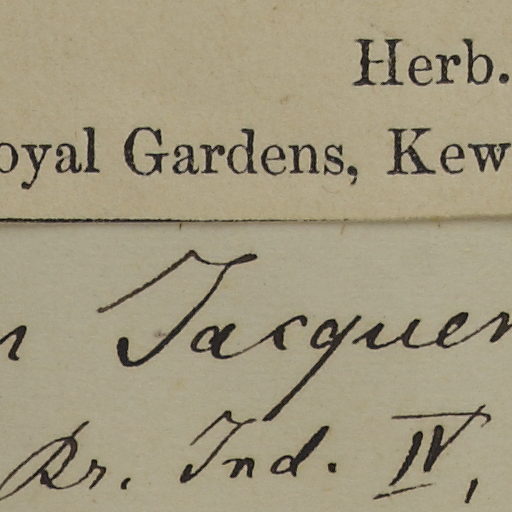 Herb.
oyal Gardens, Kew
n Jacquem
Br. Ind. IV,